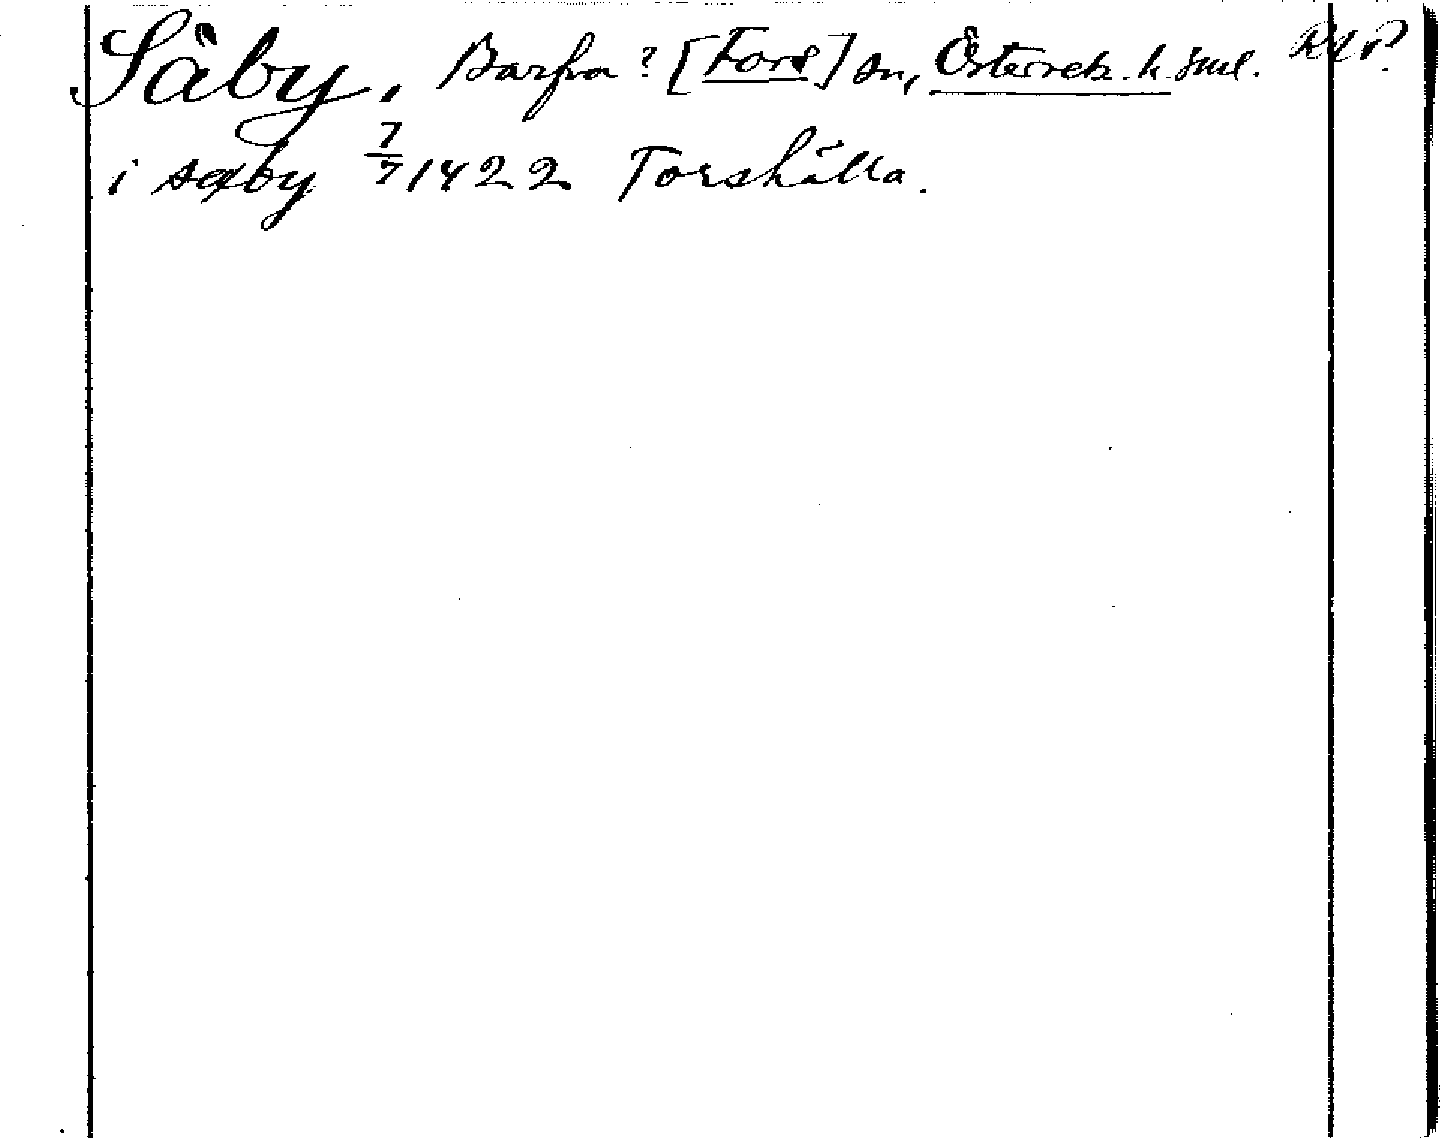 Säby, Barfra? [Fors] sn, Österrek. h. Sml. RAP.
i sæby 7/7 1422 Torshälla.